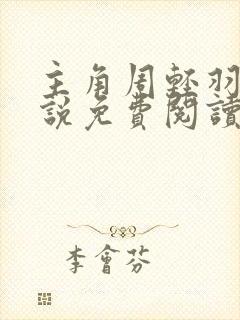 主角周輕羽
說免費閱讀
李會芬